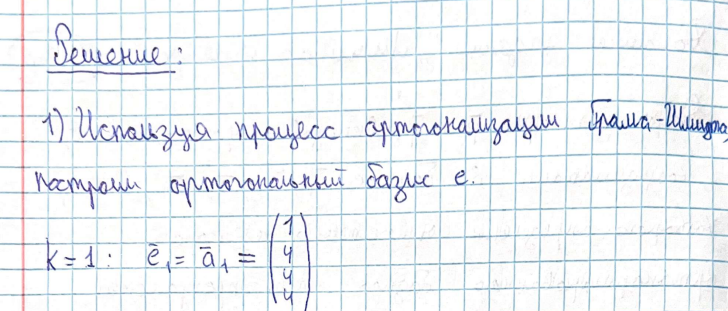 Решение:
1) Используя процесс ортогонализации Грама-Шмидта,
построим ортогональный базис e:
k=1: ē₁= ā₁ = (1 4 4 4)